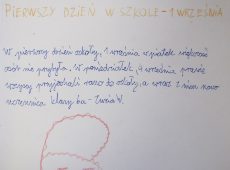 PIERWSZY DZIEŃ W SZKOLE - 1 WRZEŚNIA
W pierwszy dzień szkoły, 1 września w piątek większość
osób nie przybyła, w poniedziałek, 4 września prawie
wszyscy przyjechali razem do szkoły, a wraz z nimi nowa
uczennica klasy 6a - Zuzia W.